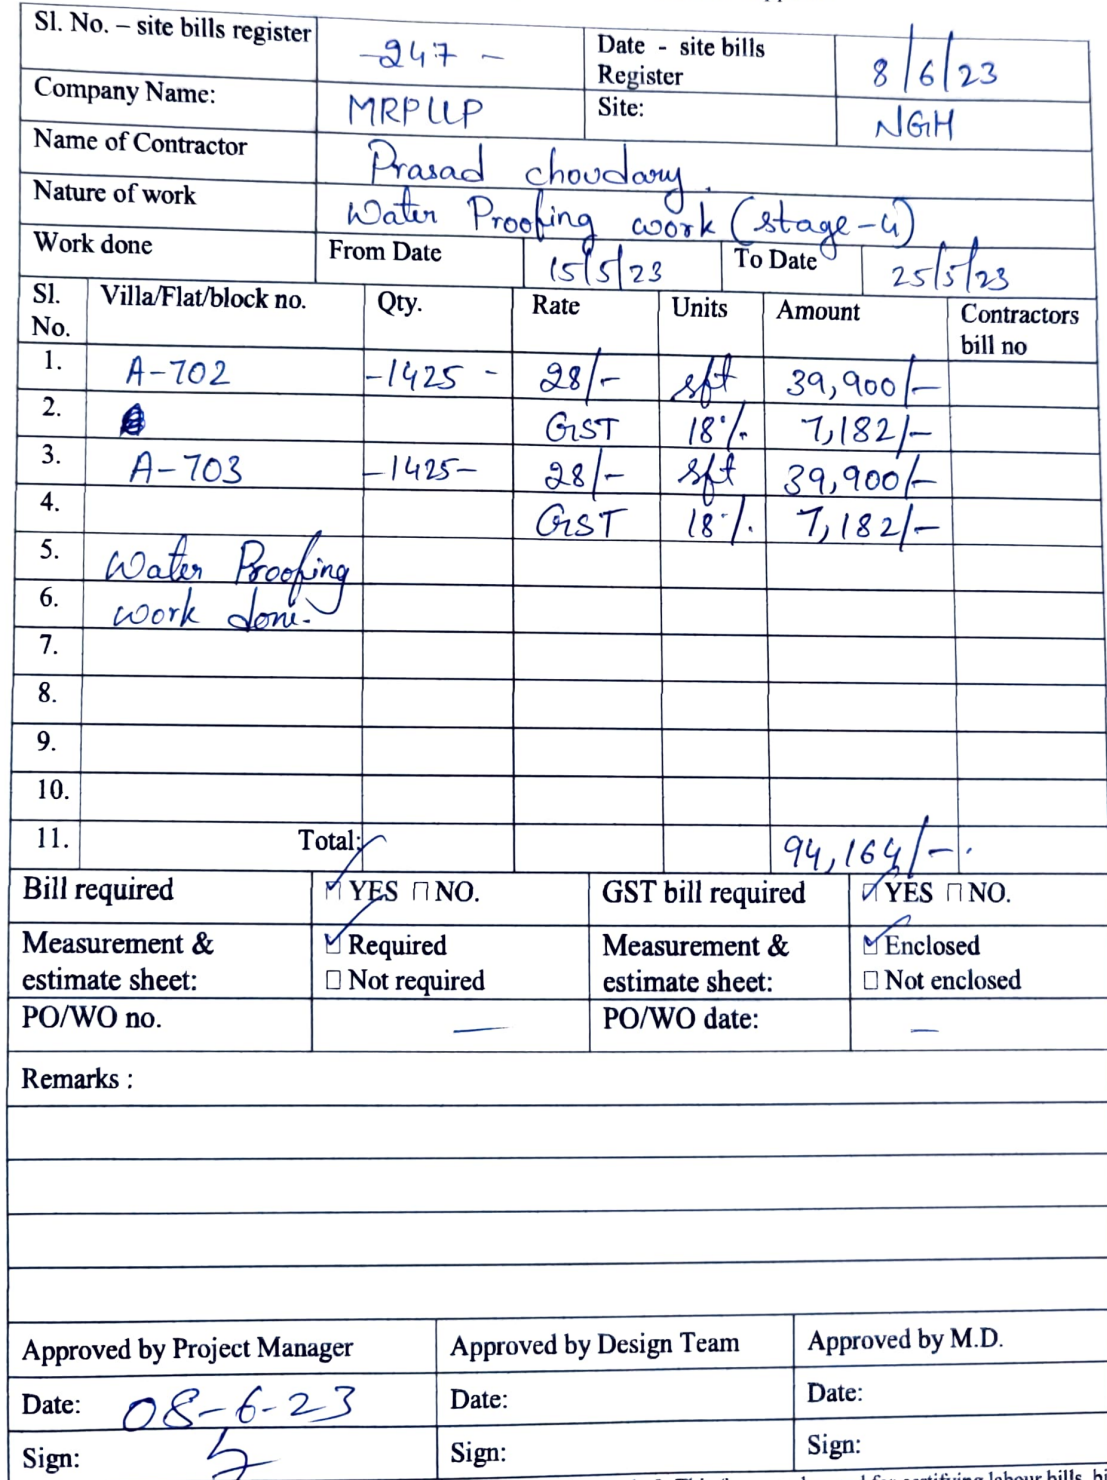 Sl. No. – site bills register -247- Date - site bills Register 8/6/23
Company Name: MRPLLP Site: NGH
Name of Contractor Prasad choudary.
Nature of work Water Proofing work (stage-4)
Work done From Date 15/5/23 To Date 25/5/23
Sl. No. Villa/Flat/block no. Qty. Rate Units Amount Contractors bill no
1. A-702 -1425- 28/- sft 39,900/-
2. GST 18% 7,182/-
3. A-703 -1425- 28/- sft 39,900/-
4. GST 18%. 7,182/-
5. Water Proofing
6. work done.
7.
8.
9.
10.
11. Total: 94,164/-.
Bill required ☑ YES □ NO. GST bill required ☑ YES □ NO.
Measurement & estimate sheet: ☑ Required □ Not required Measurement & estimate sheet: ☑ Enclosed □ Not enclosed
PO/WO no. — PO/WO date: —
Remarks :
Approved by Project Manager Approved by Design Team Approved by M.D.
Date: 08-6-23 Date: Date:
Sign: Sign: Sign: